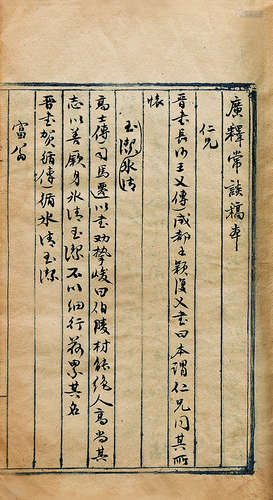 廣釋常談稿本
仁兄
晉書長沙王乂傳成都王穎復乂書曰本謂仁兄同其所
懷
玉潔冰清
高士傳司馬遷以書勸摯峻曰伯陵材能絕人高尚其
志以善厥身冰清玉潔不以細行荷累其名
晉書賀循傳循冰清玉潔
富翁